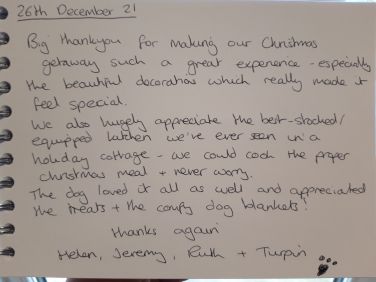 26th December 21
Big thankyou for making our Christmas
getaway such a great experience - especially
the beautiful decorations which really made it
feel special.
We also hugely appreciate the best-stocked/
equipped kitchen we've ever seen in a
holiday cottage - we could cook the proper
christmas meal + never worry.
The dog loved it all as well and appreciated
the treats + the comfy dog blankets!
thanks again
Helen, Jeremy, Ruth + Turpin